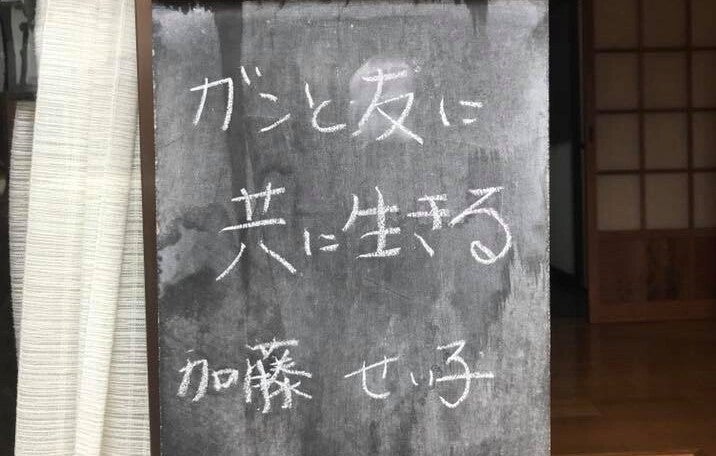 ガンと友に
共に生きる
加藤 せい子